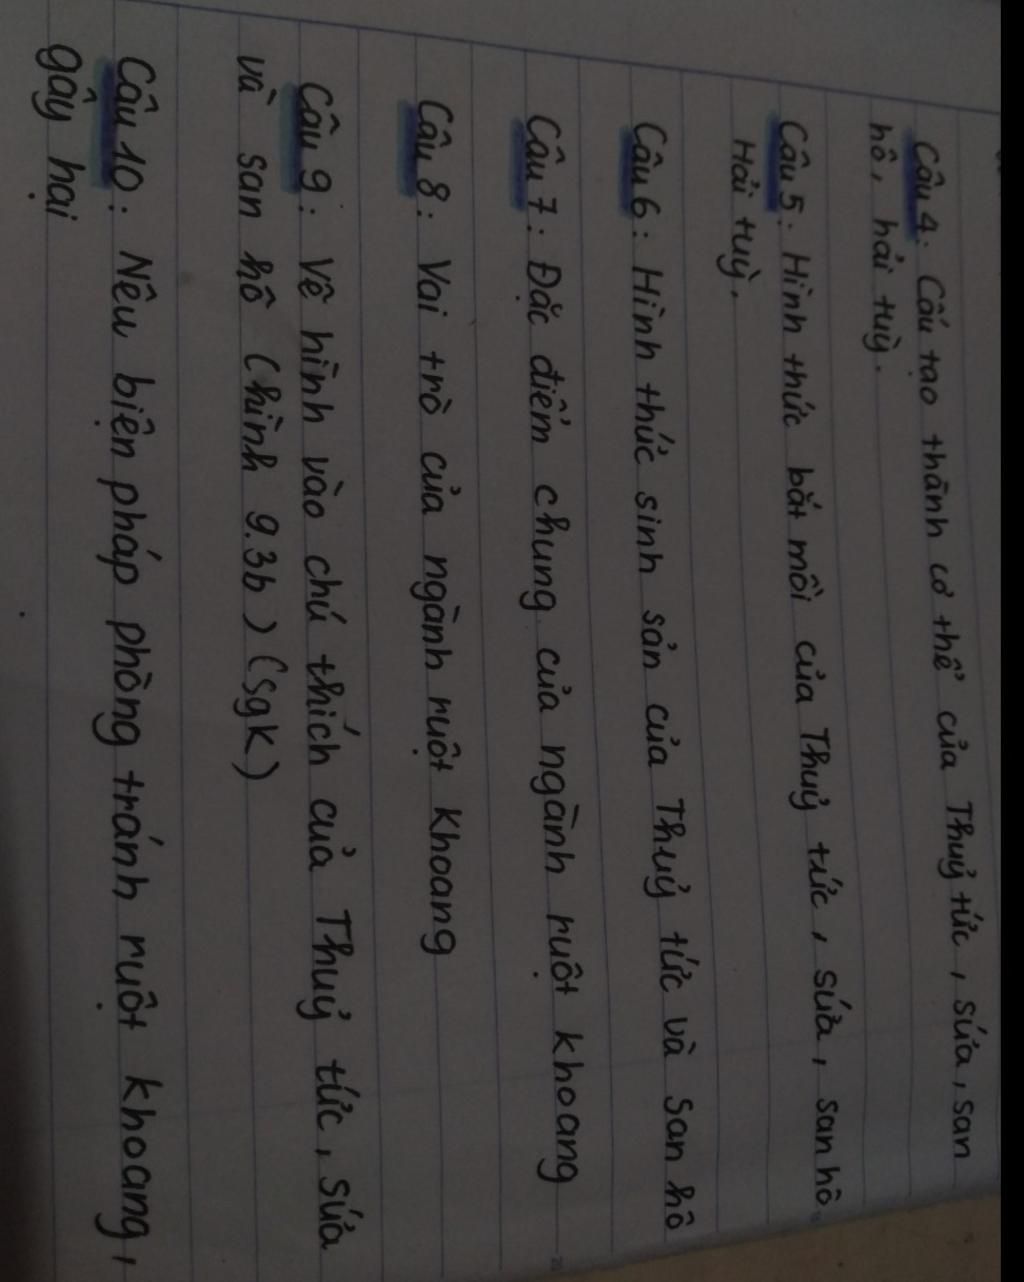 Câu 4: Cấu tạo thành cơ thể của Thuỷ tức, sứa, san
hô, hải tuỳ.
Câu 5: Hình thức bắt mồi của Thuỷ tức, sứa, san hô
Hải tuỳ.
Câu 6: Hình thức sinh sản của Thuỷ tức và San hô
Câu 7: Đặc điểm chung của ngành ruột khoang
Câu 8: Vai trò của ngành ruột Khoang
Câu 9: Vẽ hình vào chú thích của Thuỷ tức, sứa
và san hô (hình 9.3b) (sgk)
Câu 10: Nêu biện pháp phòng tránh ruột khoang,
gây hại